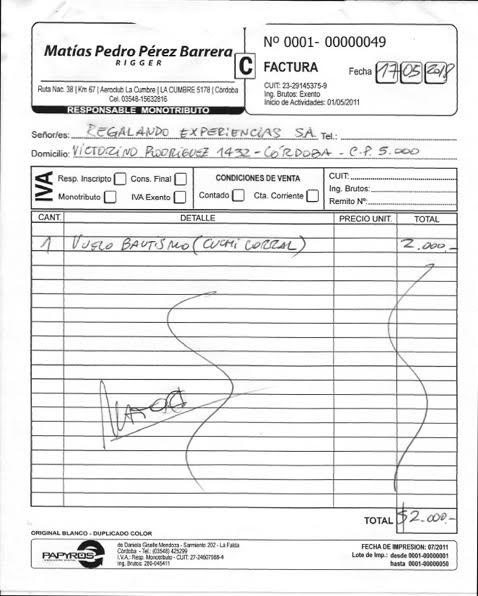 Matías Pedro Pérez Barrera
RIGGER
Ruta Nac. 38 | Km 67 | Aeroclub La Cumbre | LA CUMBRE 5178 | Córdoba
Cel. 03548-15632816
RESPONSABLE MONOTRIBUTO
C
Nº 0001- 00000049
FACTURA
Fecha 17 05 2018
CUIT: 23-29145375-9
Ing. Brutos: Exento
Inicio de Actividades: 01/05/2011
Señor/es: REGALANDO EXPERIENCIAS SA Tel.:
Domicilio: VICTORINO RODRIGUEZ 1432 - CÓRDOBA - C.P. 5.000
IVA
Resp. Inscripto Cons. Final
Monotributo IVA Exento
CONDICIONES DE VENTA
Contado Cta. Corriente
CUIT:
Ing. Brutos:
Remito Nº:
CANT. DETALLE PRECIO UNIT. TOTAL
1 VUELO BAUTISMO (CUCHI CORRAL) 2.000.-
TOTAL $2.000.-
ORIGINAL BLANCO - DUPLICADO COLOR
PAPYROS
de Daniela Giselle Mendoza - Sarmiento 202 - La Falda
Córdoba - Tel.: (03548) 425299
I.V.A.: Resp. Monotributo - CUIT: 27-24607568-4
Ing. Brutos: 280-045411
FECHA DE IMPRESION: 07/2011
Lote de Imp.: desde 0001-00000001
hasta 0001-00000050